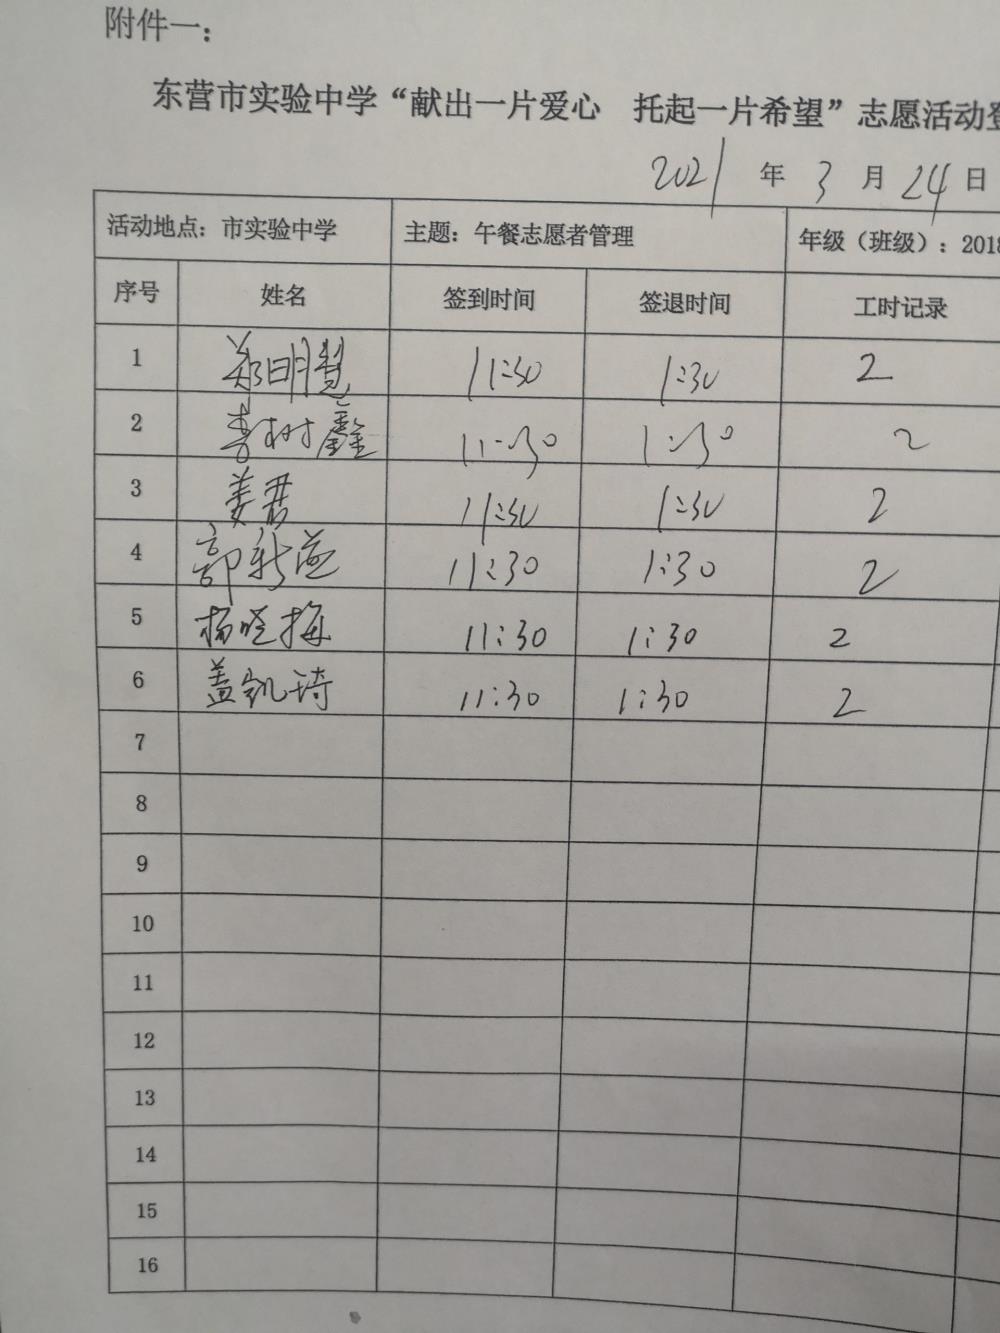 附件一：
东营市实验中学“献出一片爱心 托起一片希望”志愿活动登
2021 年 3 月 24 日
活动地点：市实验中学 主题：午餐志愿者管理 年级（班级）：2018
序号 姓名 签到时间 签退时间 工时记录
1 郑明慧 11:30 1:30 2
2 李树鑫 11:30 1:30 2
3 姜君 11:30 1:30 2
4 郭新 11:30 1:30 2
5 杨晓梅 11:30 1:30 2
6 盖凯琦 11:30 1:30 2
7
8
9
10
11
12
13
14
15
16